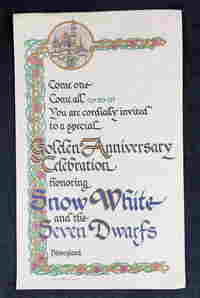 Come one
Come all
You are cordially invited
to a special
Golden Anniversary
Celebration
honoring
Snow White
and the
Seven Dwarfs
Disneyland